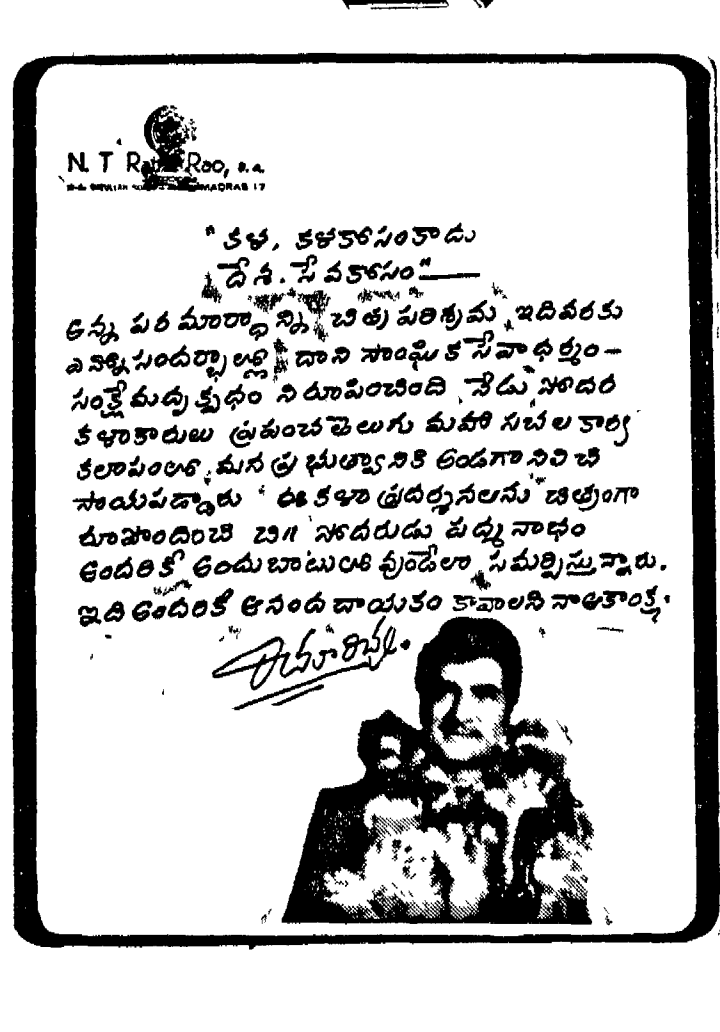 N. T. Rama Rao, B. A.
MADRAS 17
"కళ, కళకోసంకాదు
దేశ. సేవకోసం"
అన్న పరమార్ధాన్ని చిత్ర పరిశ్రమ, ఇదివరకు
ఎన్నో సందర్భాల్లో దాని సాంఘిక సేవాధర్మం-
సంక్షేమదృక్పధం నిరూపించింది. నేడు, సోదర
కళాకారులు ప్రపంచ తెలుగు మహా సభల కార్య
కలాపంలో, మన ప్రభుత్వానికి అండగా నిలిచి
సాయపడ్డారు. ఈ కళా ప్రదర్శనలను చిత్రంగా
రూపొందించి చి॥ సోదరుడు పద్మనాభం
అందరికీ అందుబాటులో వుండేలా, సమర్పిస్తున్నారు.
ఇది అందరికీ ఆనందదాయకం కావాలని నా ఆకాంక్ష.